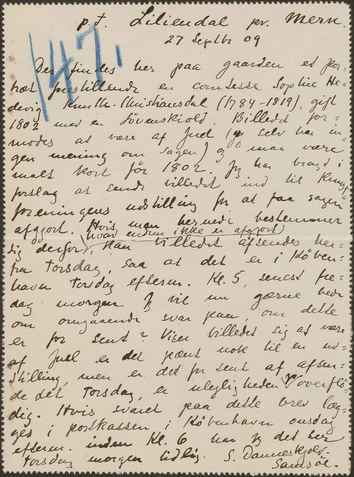 147.
p.t. Liliendal pr. Mern.
27 Septbr 09
Der findes her paa gaarden et por-
træt forestillende en comtesse Sophie He-
devig Knuth-Christiansdal (1784-1819), gift
1802 med en Løvenskiold. Billedet for-
modes at være af Juel (jeg selv har in-
gen mening om sagen) og maa være
malt kort før 1802. Jeg har bragt i
forslag at sende billedet ind til Kunst-
foreningens udstilling for at faa sagen
afgjort. Hvis man hernede bestemmer
(hvad endnu ikke er afgjort)
sig derfor, kan billedet afsendes her-
fra Torsdag, saa at det er i Køben-
havn Torsdag efterm. Kl. 5, senest fre-
dag morgen. Jeg vil nu gærne bede
om omgaaende svar paa, om dette
er for sent? Viser billedet sig at være
af Juel er det pænt nok til en ud-
stilling, men er det for sent at afsen-
de det Torsdag, er uleiligheden jo overflø-
dig. Hvis svaret paa dette brev læg-
ges i postkassen i København onsdag
efterm. inden Kl. 6 har jeg det her
Torsdag morgen tidlig. S. Danneskjold-
Samsøe.